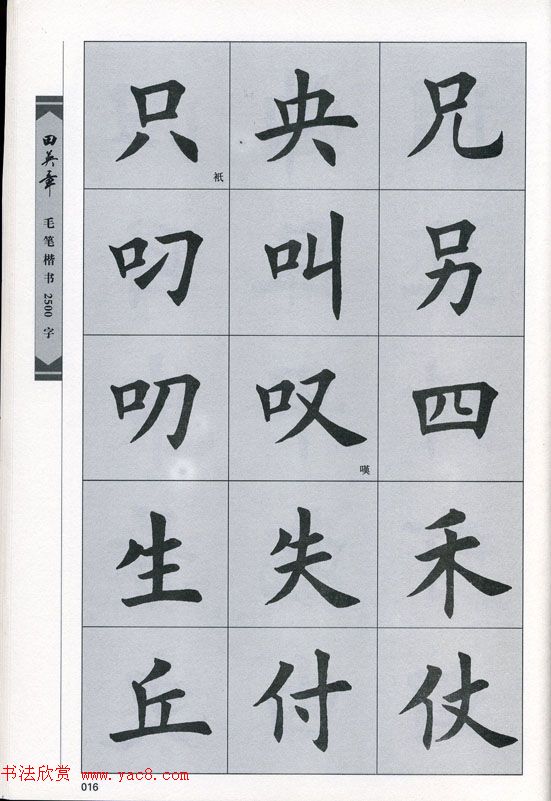 田英章 毛笔楷书2500字
只 衹 央 兄
叼 叫 另
叨 叹 嘆 四
生 失 禾
丘 付 仗
书法欣赏 www.yac8.com
016